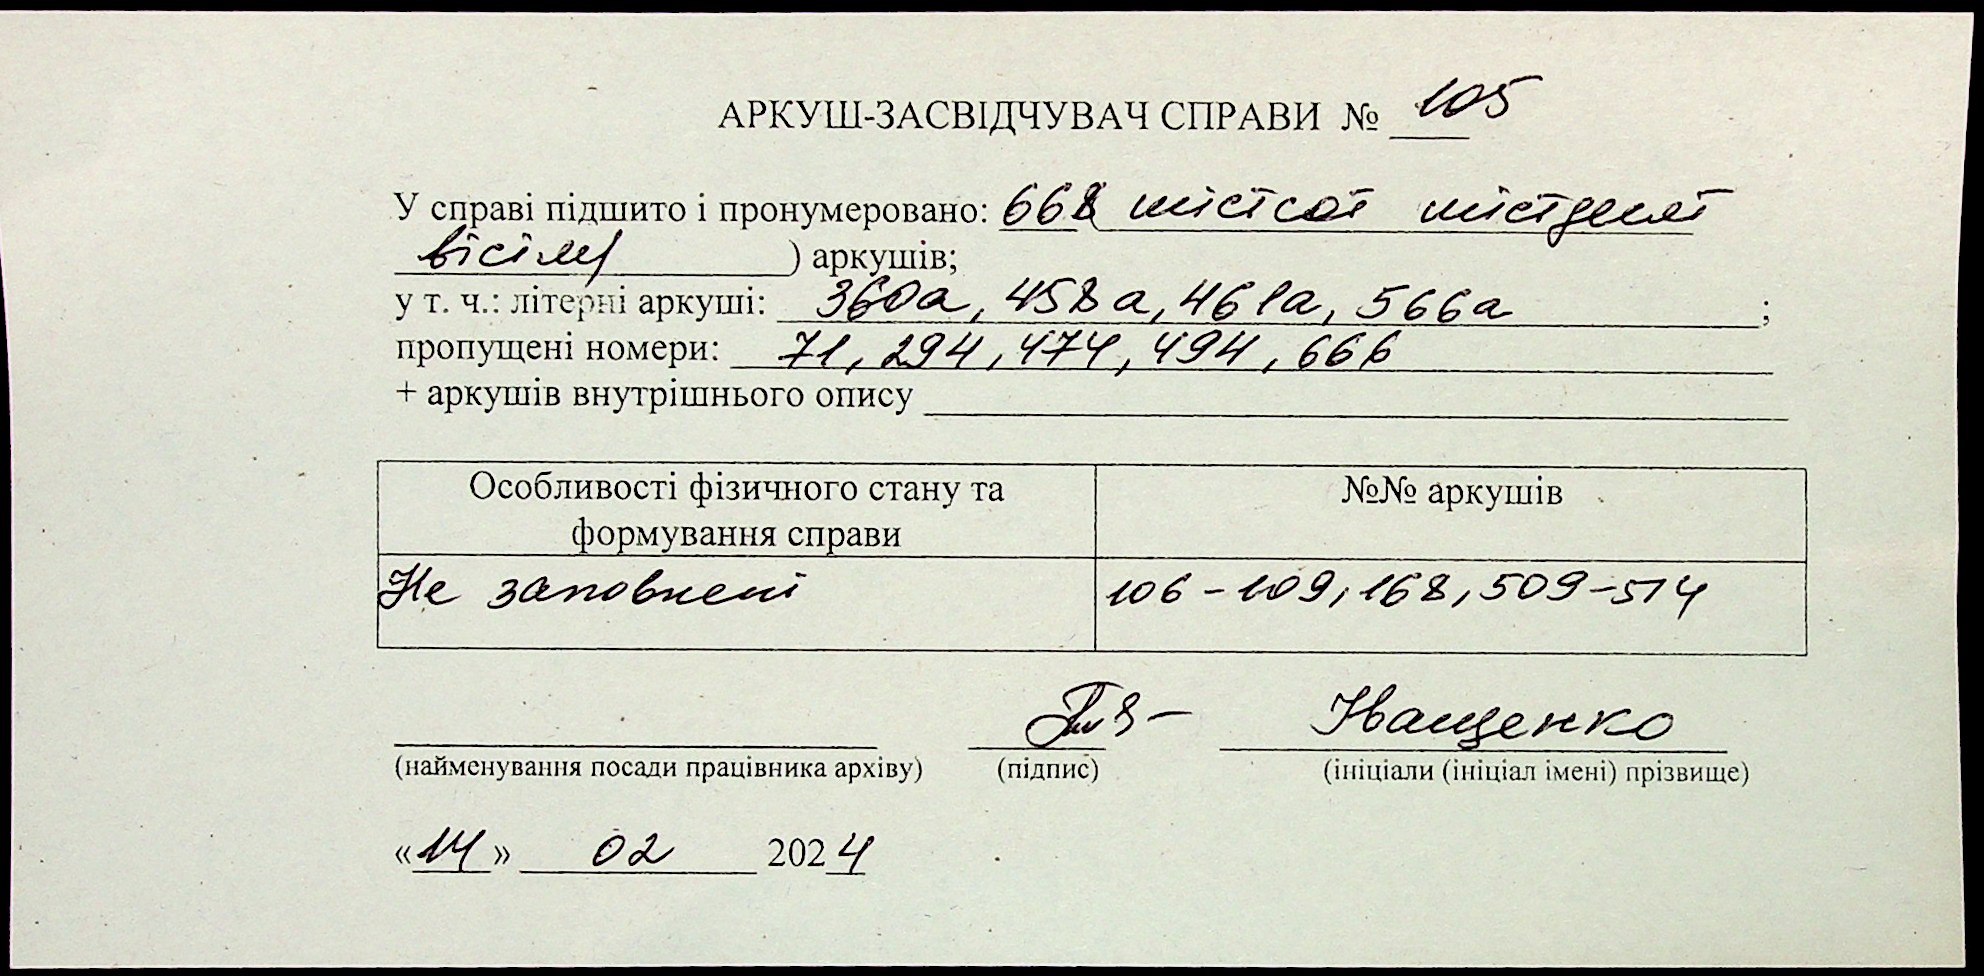 АРКУШ-ЗАСВІДЧУВАЧ СПРАВИ № 105
У справі підшито і пронумеровано: 668 (шістсот шістдесят
вісім) ) аркушів;
у т. ч.: літерні аркуші: 360а, 458а, 461а, 566а ;
пропущені номери: 71, 294, 474, 494, 666
+ аркушів внутрішнього опису
Особливості фізичного стану та
формування справи
№№ аркушів
Не заповнені
106-109, 168, 509-514
Іващенко
(найменування посади працівника архіву) (підпис) (ініціали (ініціал імені) прізвище)
«14» 02 2024